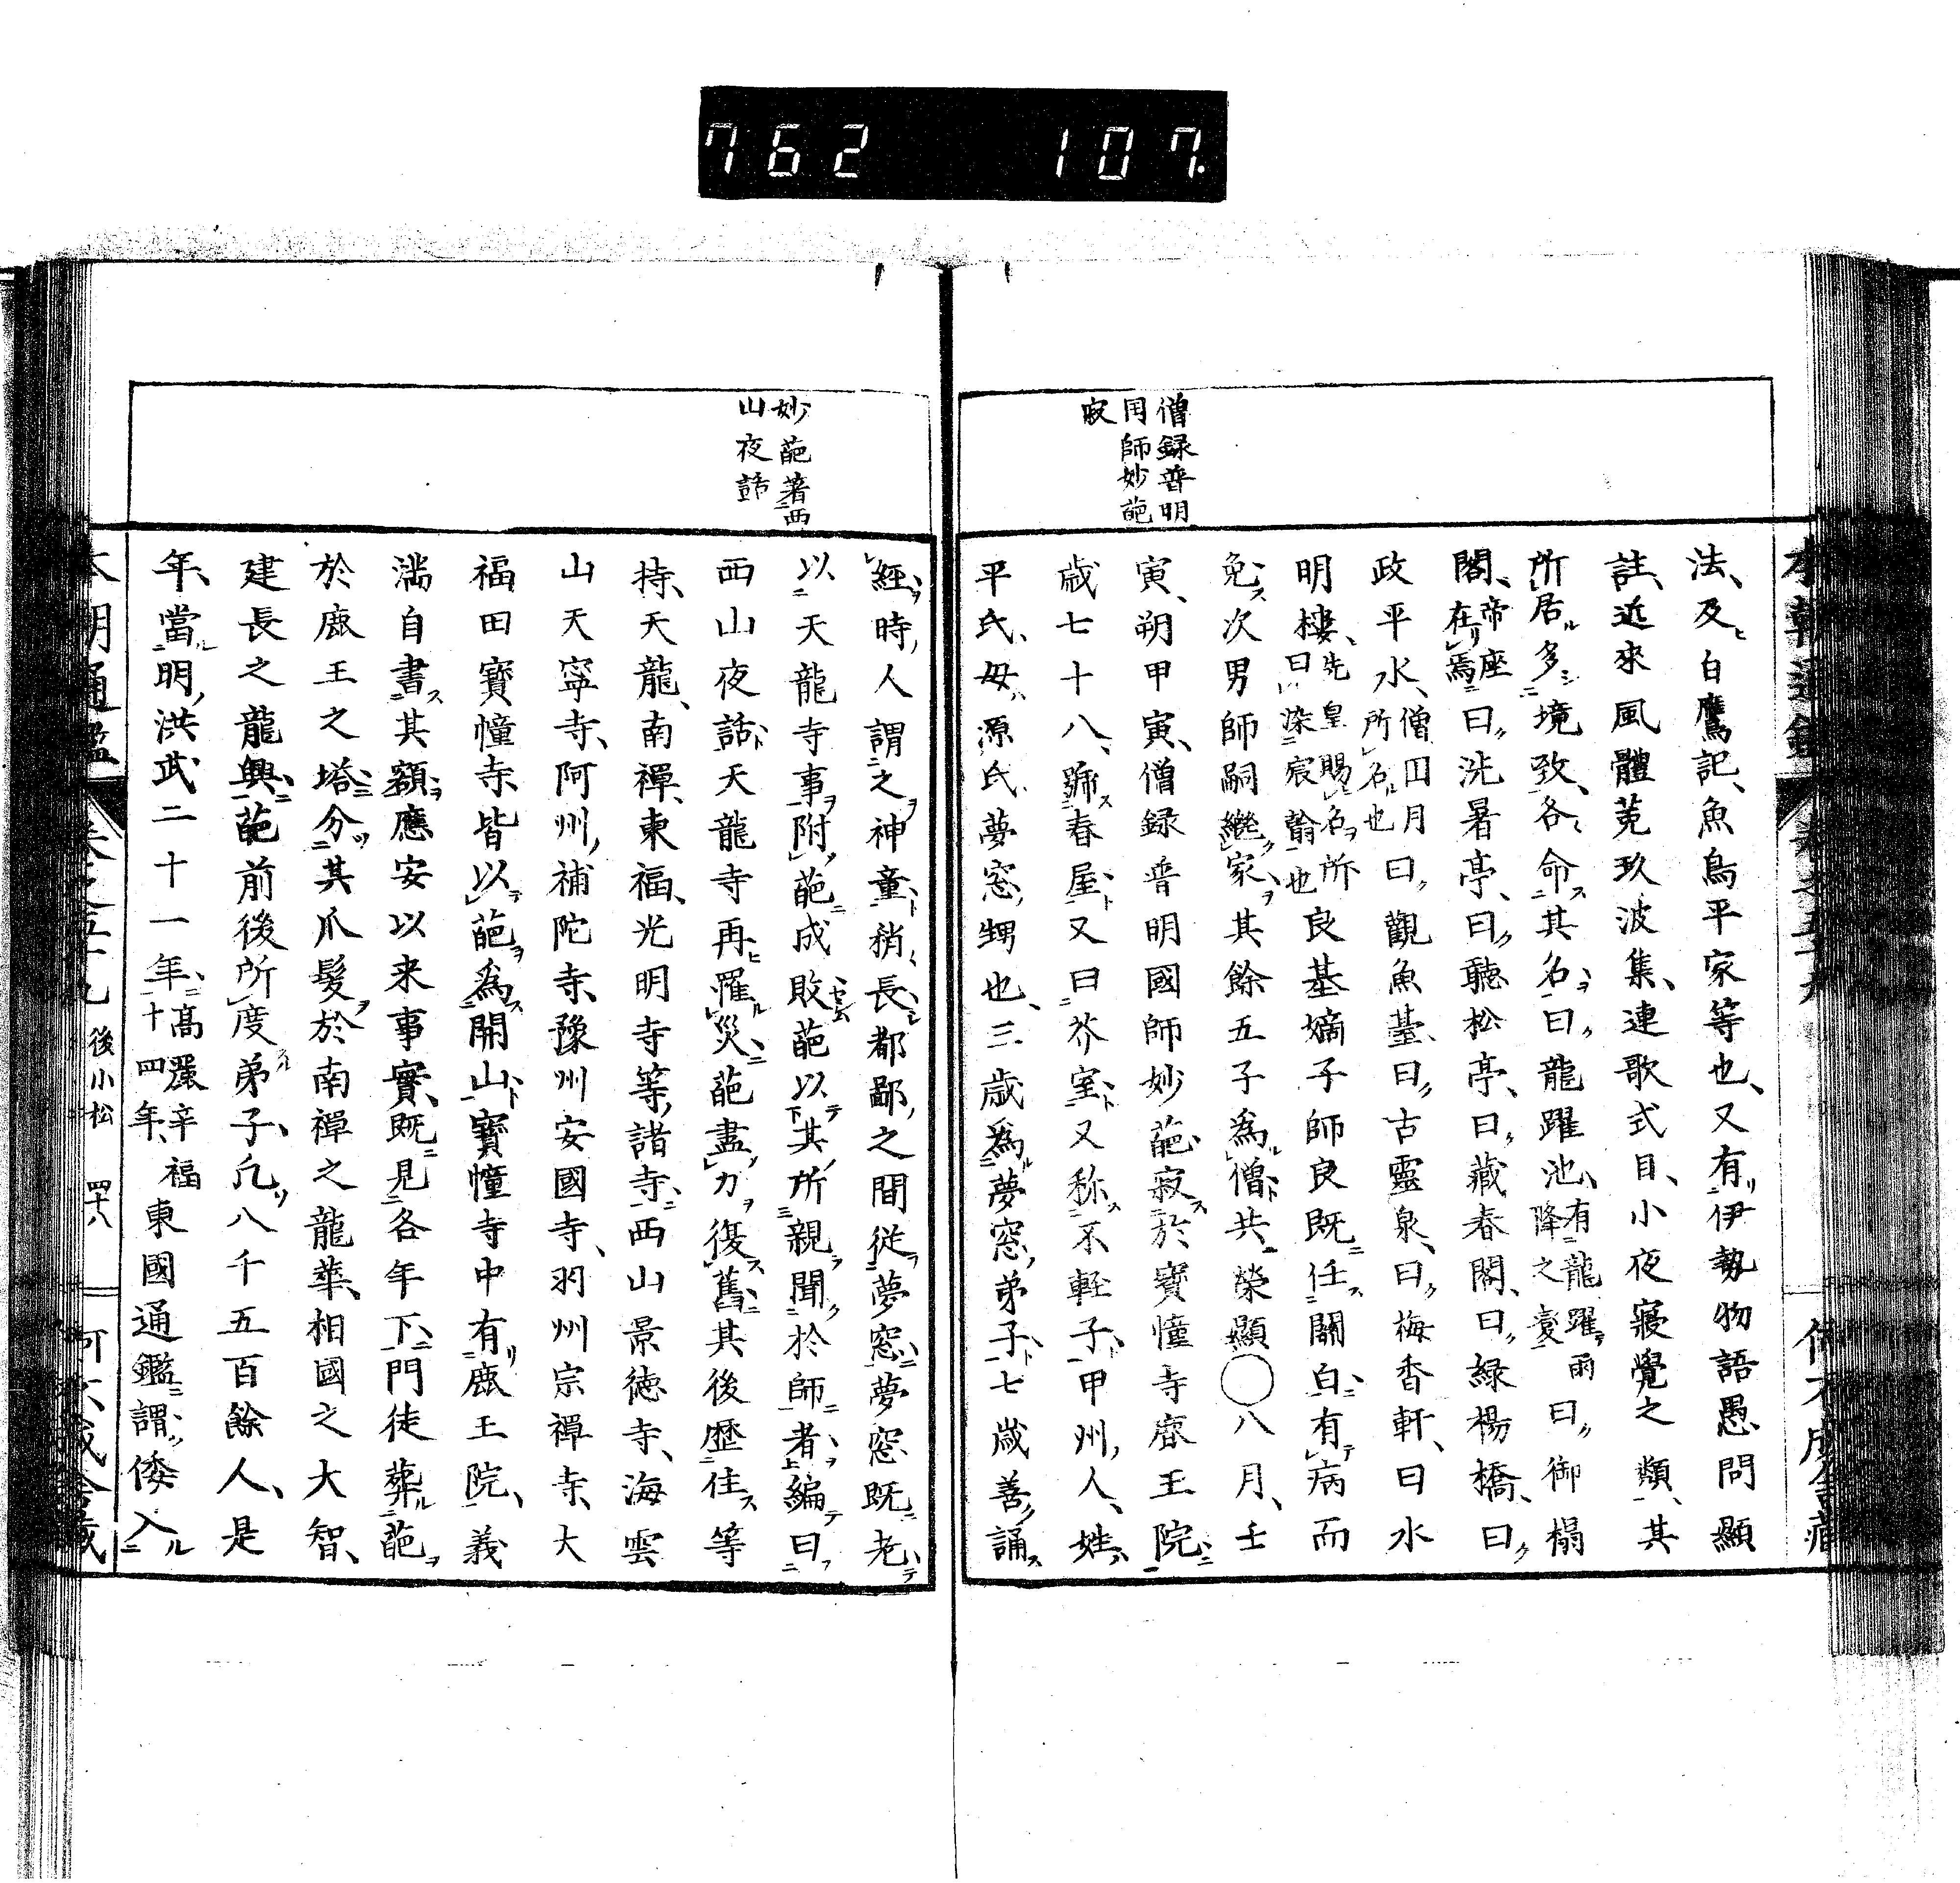 762 107
僧録普明
国師妙葩
寂
法及白鷹記魚鳥平家等也又有伊勢物語愚問顯
註近來風體菟玖波集連歌式目小夜寢覺之類其
所居多境致各命其名曰龍躍池有龍躍雨降之憂曰御榻
閣帝座在焉曰洗暑亭曰聽松亭曰藏春閣曰緑楊橋曰
政平水僧囗月所名也曰觀魚臺曰古靈泉曰梅香軒曰水
明樓先皇賜名所曰染宸翰也良基嫡子師良既任關白有病而
免次男師嗣繼家其餘五子為僧共榮顯〇八月壬
寅朔甲寅僧録普明國師妙葩寂於寶幢寺鹿王院
歳七十八號春屋又曰芥室又称不軽子甲州人姓
平氏母源氏夢窓甥也三歳為夢窓弟子七歳善誦
妙葩著西
山夜話
經時人謂之神童稍長都鄙之間從夢窓夢窓既老
以天龍寺事附葩成敗葩以其所親聞於師者編曰
西山夜話天龍寺再罹災葩盡力復舊其後歴住等
持天龍南禪東福光明寺等諸寺西山景徳寺海雲
山天寧寺阿州補陀寺豫州安國寺羽州宗禪寺大
福田寶幢寺皆以葩為開山寶幢寺中有鹿王院義
満自書其額應安以来事實既見各年下門徒葬葩
於鹿王之塔分其爪髮於南禪之龍華相國之大智
建長之龍興葩前後所度弟子凡八千五百餘人是
年當明洪武二十一年高麗辛福十四年東國通鑑謂倭入
後小松 四十八